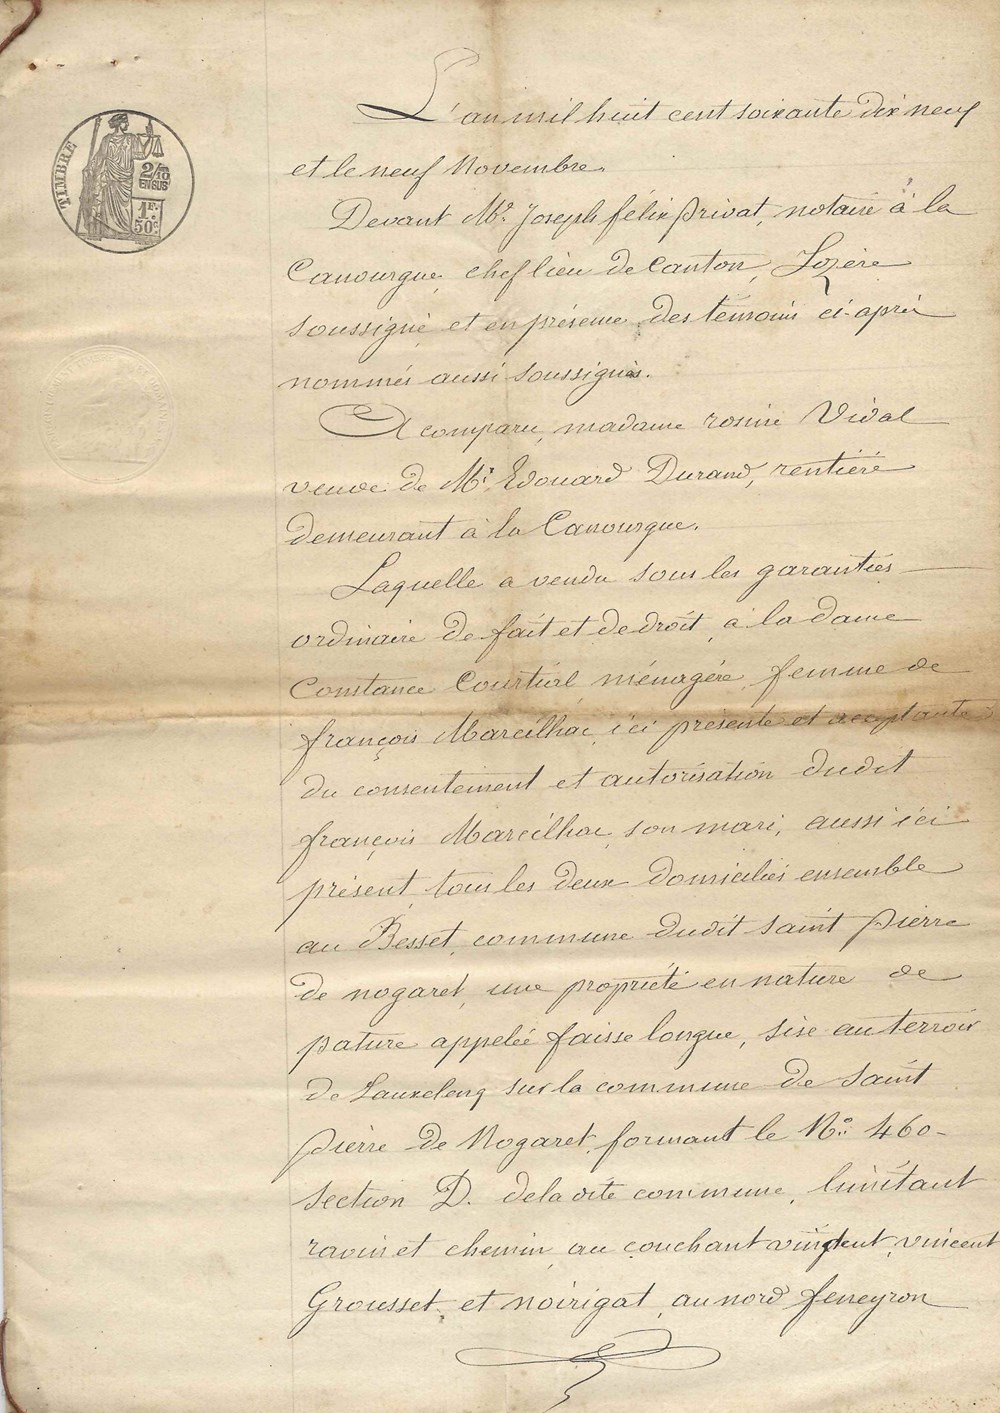 TIMBRE
2/10
EN SUS
1F.
50c.
L'an mil huit cent soixante dix neuf
et le neuf Novembre.
Devant Me Joseph félix privat, notaire à la
Canourgue, chef lieu de Canton, Lozère
soussigné, et en présence des témoins ci-après
nommés aussi soussignés.
A comparu, madame rosine Vidal
veuve de Mr. Edouard Durand, rentière
demeurant à la Canourgue.
Laquelle a vendu sous les garanties
ordinaire de fait et de droit, à la dame
Constance Courtial ménagère, femme de
françois Mareilhac, ici présente et acceptante
du consentement et autorisation dudit
françois Mareilhac, son mari, aussi ici
présent, tous les deux domiciliés ensemble
au Besset, commune dudit saint pierre
de nogaret, une propriété en nature de
pature appelée faisse longue, sise au terroir
de sur la commune de saint
pierre de Nogaret, formant le No. 460-
section D. de la dite commune, limitant
ravin et chemin, au couchant vincent
Grousset, et noirigat, au nord feneyron